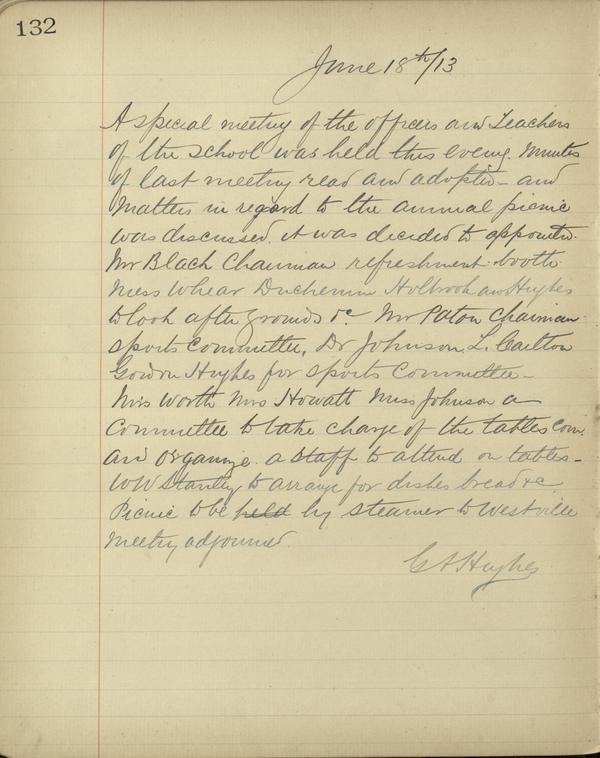 132
June 18th/13
A special meeting of the officers and Teachers
of the School was held this eveing. Minutes
of last meeting read and adopted – and
Matters in regard to the annual picnic
was discussed. it was decided to appoint
Mr Black Chairman refreshment booth
Mess Whear Duchemin Holbrook and Hughes
to look after grounds &c Mr Paton Chairman
sports Committee, Dr Johnson, L. Carlton
Gordon Hughes for sports Committee –
Mrs Worth Mrs Howatt Miss Johnson a
Committee to take charge of the tables Com.
and organize a staff to attend on tables –
WW Stanley to arrange for dishes bread &c
Picnic to be held by steamer to Westville
Meeting adjourned.
G A Hughes